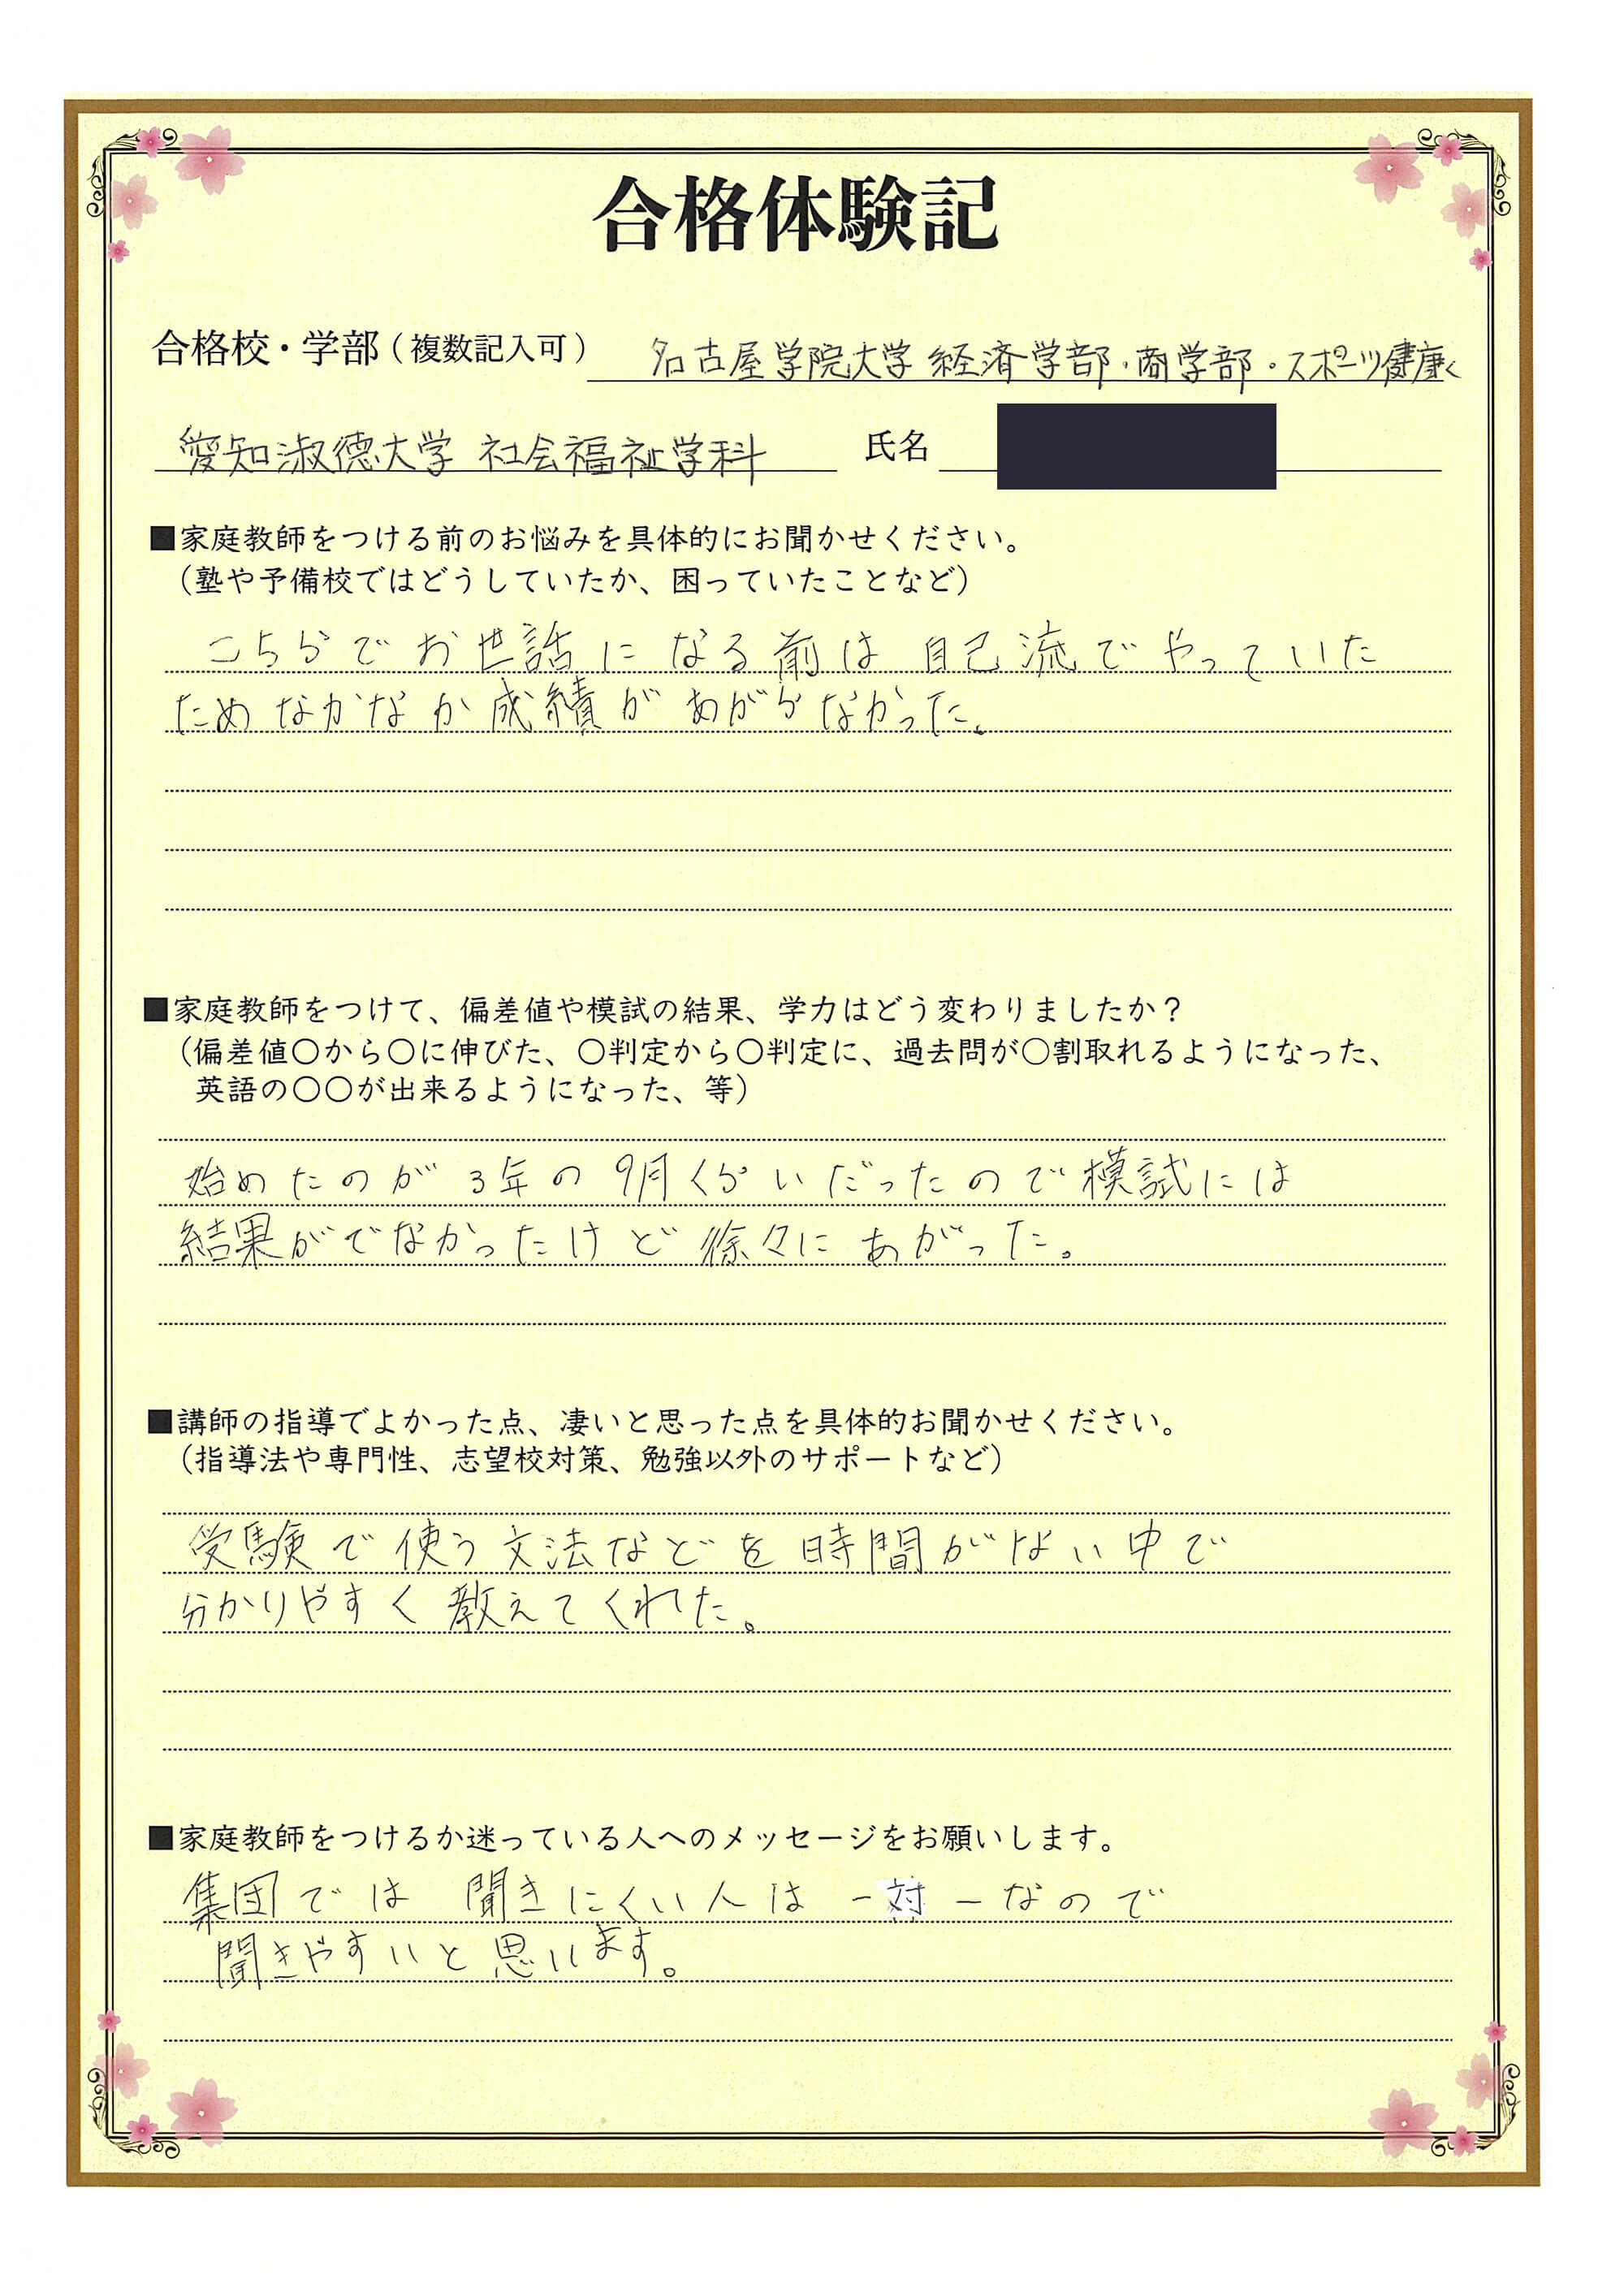 合格体験記
合格校・学部(複数記入可) 名古屋学院大学 経済学部・商学部・スポーツ健康
愛知淑徳大学 社会福祉学科 氏名
■家庭教師をつける前のお悩みを具体的にお聞かせください。
(塾や予備校ではどうしていたか、困っていたことなど)
こちらでお世話になる前は自己流でやっていた
ためなかなか成績があがらなかった。
■家庭教師をつけて、偏差値や模試の結果、学力はどう変わりましたか?
(偏差値〇から〇に伸びた、〇判定から〇判定に、過去問が〇割取れるようになった、
英語の〇〇が出来るようになった、等)
始めたのが3年の9月くらいだったので模試には
結果がでなかったけど徐々にあがった。
■講師の指導でよかった点、凄いと思った点を具体的お聞かせください。
(指導法や専門性、志望校対策、勉強以外のサポートなど)
受験で使う文法などを時間がない中で
分かりやすく教えてくれた。
■家庭教師をつけるか迷っている人へのメッセージをお願いします。
集団では聞きにくい人は一対一なので
聞きやすいと思います。